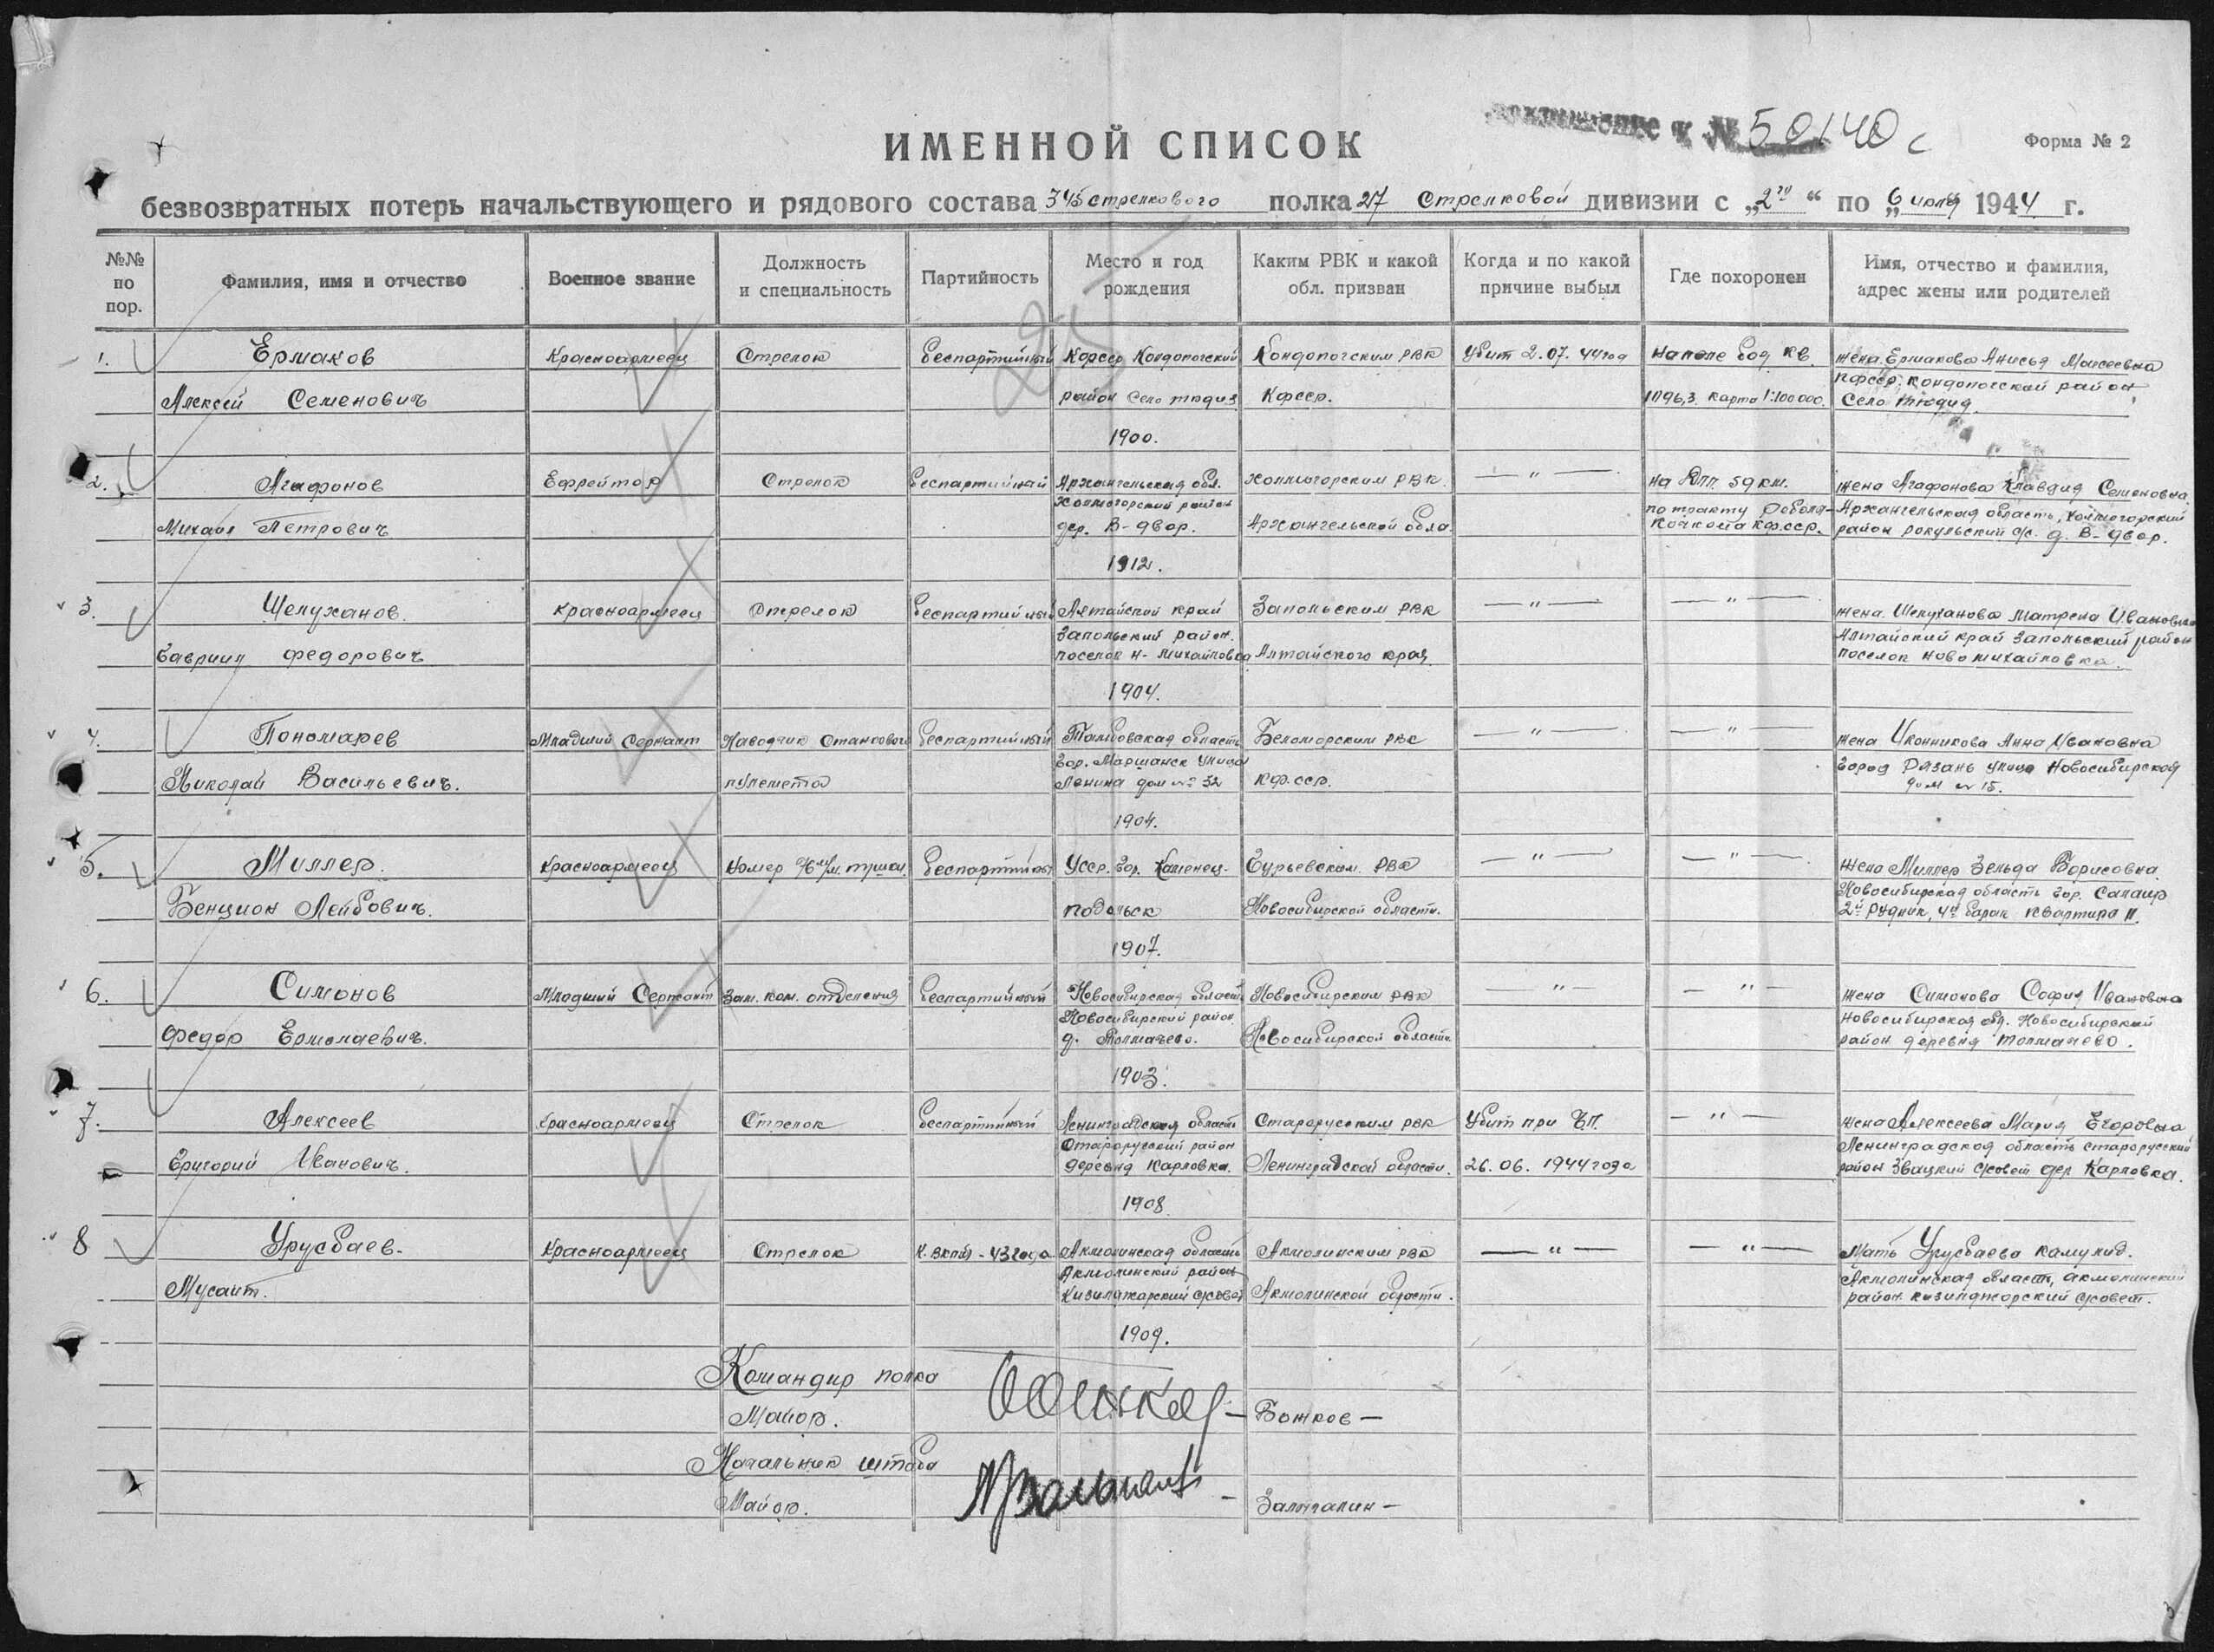 ИМЕННОЙ СПИСОК
к № 50140 с
Форма № 2
безвозвратных потерь начальствующего и рядового состава 345 стрелкового полка 27 Стрелковой дивизии с „2го“ по „6 июля 1944 г.
№№ по пор.
Фамилия, имя и отчество
Военное звание
Должность и специальность
Партийность
Место и год рождения
Каким РВК и какой обл. призван
Когда и по какой причине выбыл
Где похоронен
Имя, отчество и фамилия, адрес жены или родителей
1. Ермаков Красноармеец Стрелок беспартийный Кфсср Кондопогский Кондопогским РВК Убит 2.07.44 год жена Ермакова Анисья Моисеевна
Кфсср, Кондопогский район
Алексей Семенович район село Кфсср. 1096,3 карта 1:100000. Село
1900.
2. Агафонов Ефрейтор Стрелок беспартийный Архангельская обл. Холмогорским РВК. — " — на 59 км. жена Агафонова Клавдия Семеновна
Холмогорский район по тракту Реболы- Архангельская область, Холмогорский
Михаил Петрович дер. В-двор. Архангельской обла. Кочкома Кфсср. район рокульский с/с. д. В-двор.
1912.
3. Шелуханов Красноармеец Стрелок беспартийный Алтайский край Запольским РВК — " — — " — жена Шелуханова Матрена Ивановна
Запольский район. Алтайский край Запольский район
Гавриил Федорович поселок Н-Михайловка Алтайского края. поселок Новомихайловка.
1904.
4. Пономарев Младший Сержант Наводчик Станкового беспартийный Тамбовская область Беломорским РВК — " — — " — жена Иконникова Анна Ивановна
гор. Моршанск улица город Рязань улица Новосибирская
Николай Васильевич. пулемета Ленина дом № 32 Кфсср. дом № 15.
1904.
5. Миллер Красноармеец Номер беспартийный Усср. гор. Каменец- Гурьевским РВК — " — — " — жена Миллер Зельда Борисовна
Новосибирская область гор. Салаир
Бенцион Лейбович. подольск Новосибирской области. 2й рудник, 4й барак квартира 11.
1907.
6. Симонов Младший Сержант Зам. ком. отделения беспартийный Новосибирская область Новосибирским РВК — " — — " — жена Симонова София Ивановна
Новосибирский район Новосибирская обл. Новосибирский
Федор Ермолаевич. д. Толмачево. Новосибирской области. район деревня Толмачево.
1903.
7. Алексеев Красноармеец Стрелок беспартийный Ленинградская область Старорусским РВК Убит при — " — жена Алексеева Мария Егоровна
Старорусский район Ленинградская область старорусский
Григорий Иванович. деревня Карловка. Ленинградской области. 26.06.1944 года район Звацкий с/совет дер Карловка.
1908
8 Урусбаев. Красноармеец Стрелок К. ВКП(б) - 43 года Акмолинская область Акмолинским РВК — " — — " — Мать Урусбаева
Акмолинский район Акмолинская область, акмолинский
Мусаит. Кизилжарский с/совет Акмолинской области. район кизилджарский с/совет.
1909.
Командир полка
Майор. — Божков —
Начальник штаба
Майор. —